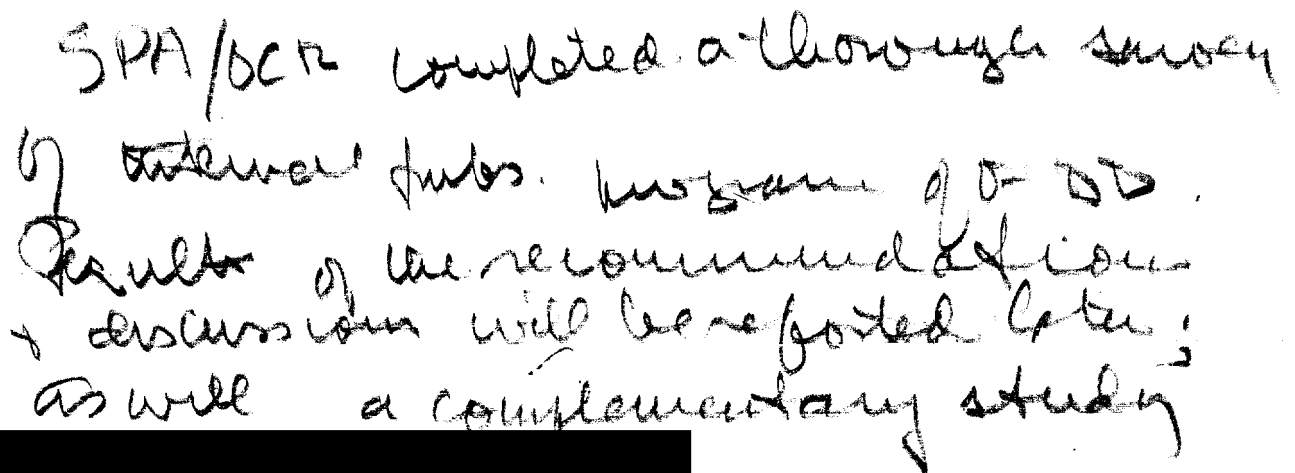 SPA/DCR completed a thorough survey
of internal pubs. program of O-DD.
Results of the recommendations
+ discussions will be reported later;
as will a complementary study